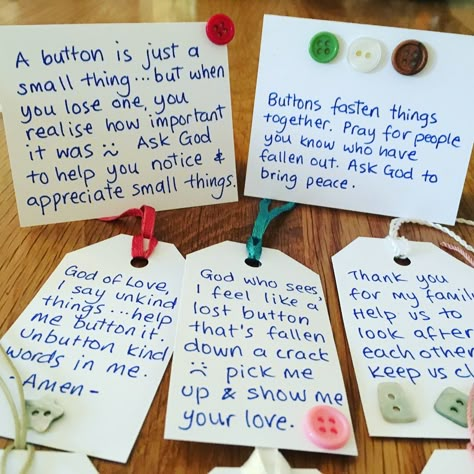 A button is just a
small thing...but when
you lose one, you
realise how important
it was :( Ask God
to help you notice &
appreciate small things.
Buttons fasten things
together. Pray for people
you know who have
fallen out. Ask God to
bring peace.
God of Love,
I say unkind
things...help
me button it.
Unbutton kind
words in me.
-Amen-
God who sees,
I feel like a
lost button
that's fallen
down a crack
:( pick me
up & show me
your love.
Thank you
for my family
Help us to
look after
each other
keep us